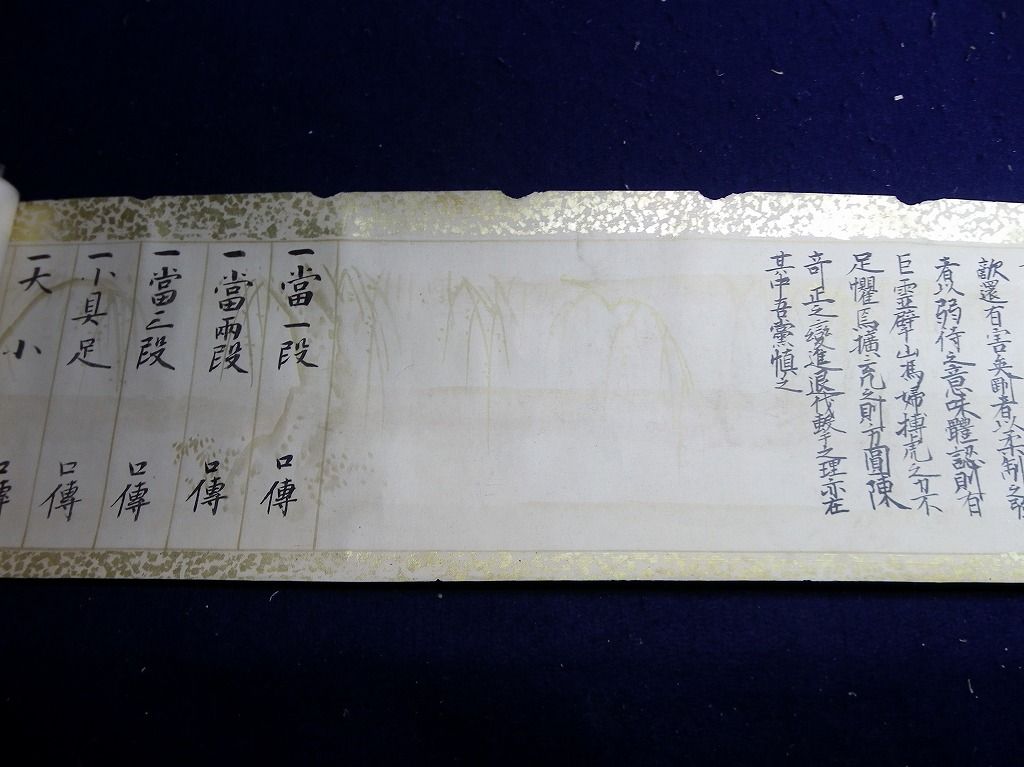 歟還有害矣剛者以柔制之強
者以弱待之意味體認則有
巨靈擘山馮婦搏虎之力不
足懼焉擴充之則方圓陳
奇正之變進退伐毀之理亦在
其中吾黨慎之
一當一段 口傳
一當兩段 口傳
一當三段 口傳
一小具足 口傳
一大小 口傳